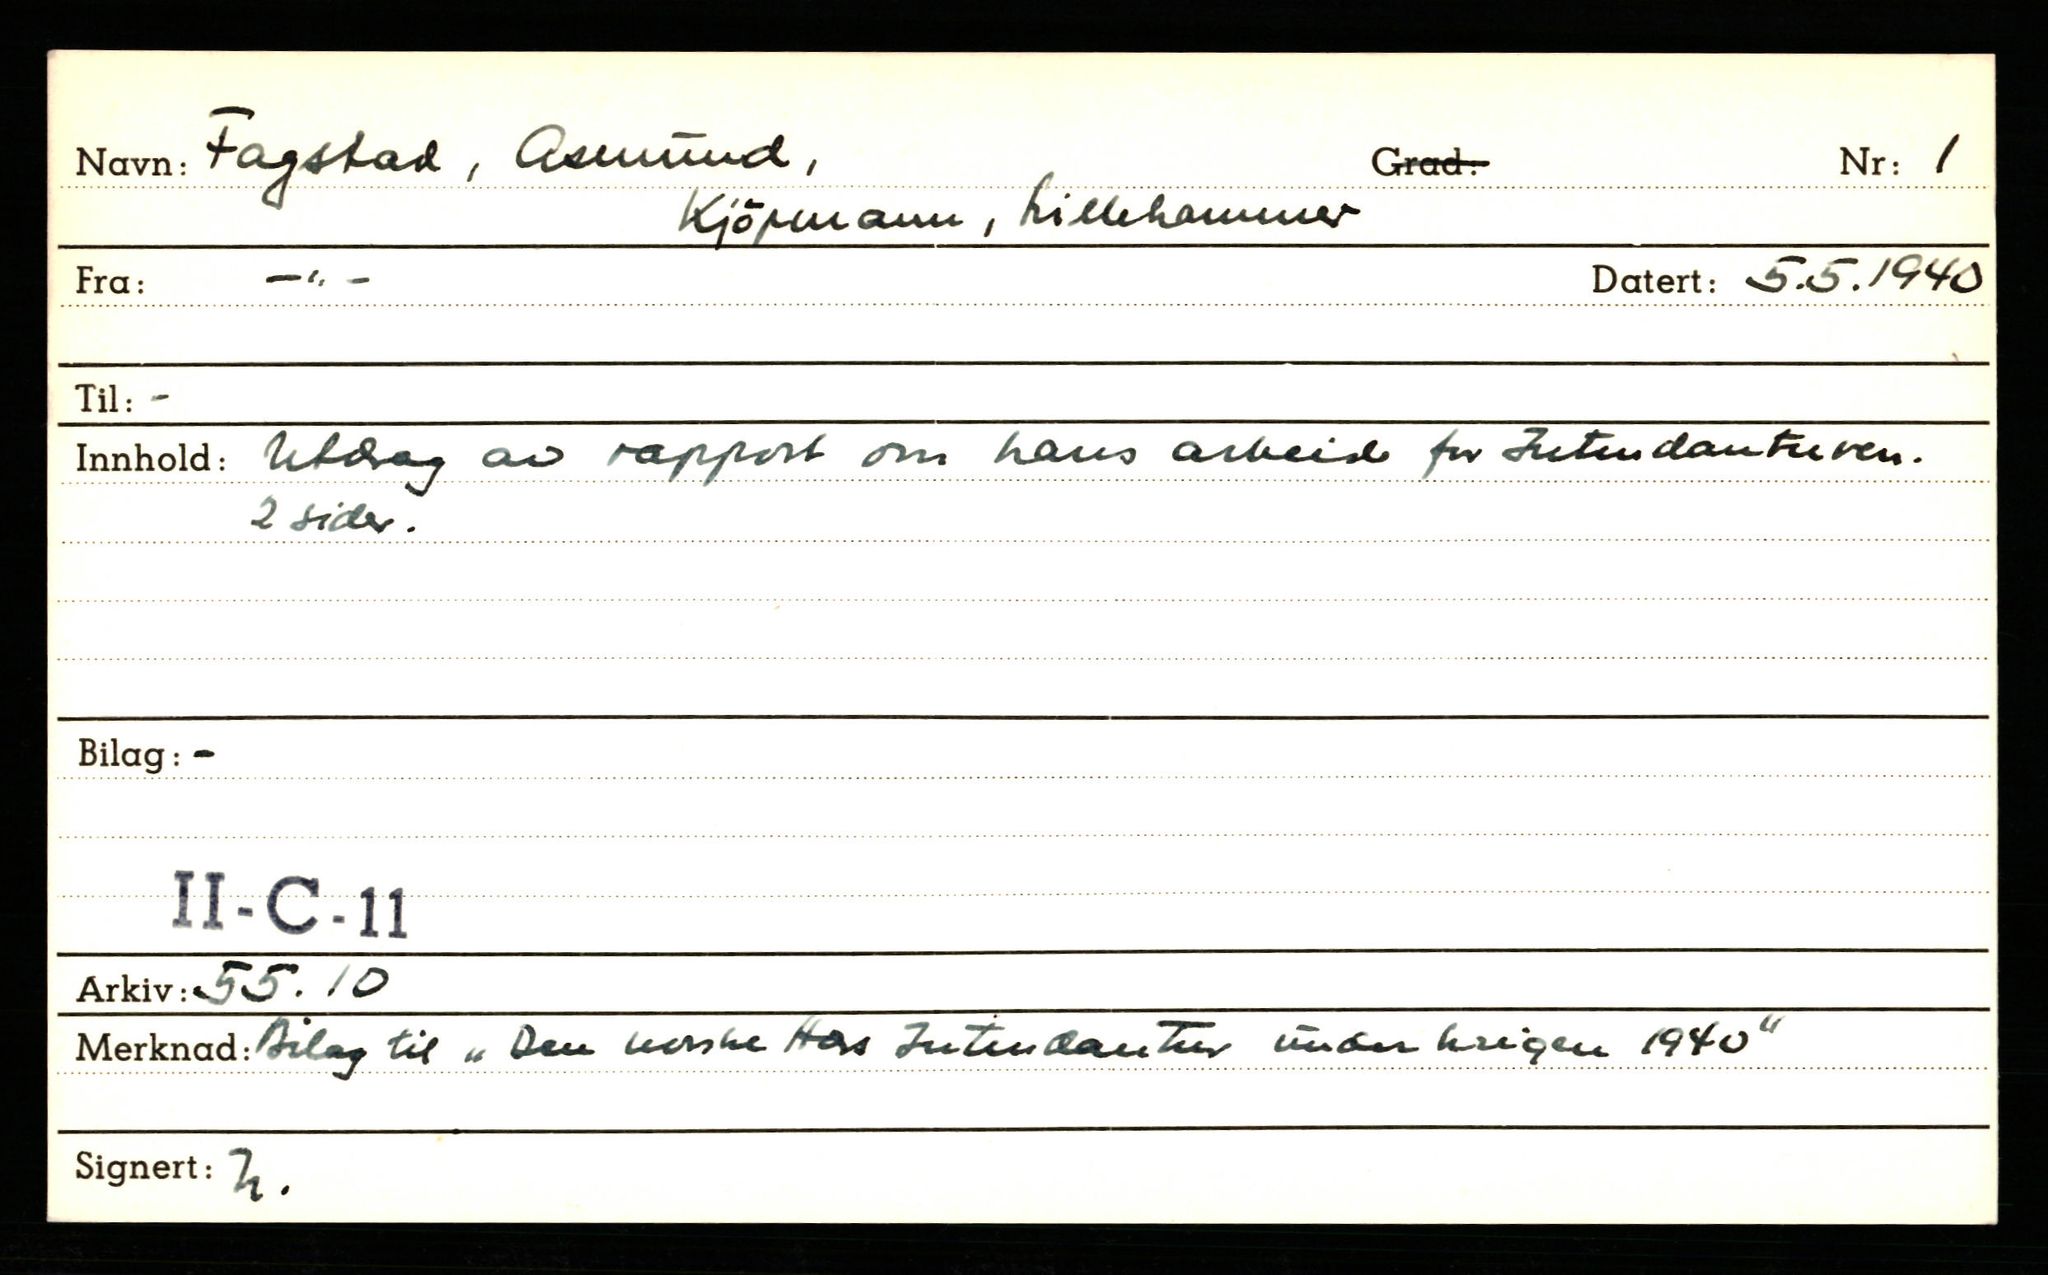 Navn: Fagstad, Asmund, Grad: Nr: 1
Kjöpmann, Lillehammer
Fra: -"- Datert: 5.5.1940
Til: -
Innhold: Utdrag av rapport om hans arbeide for Intendanturen.
2 sider.
Bilag: -
II-C-11
Arkiv: 55.10
Merknad: Bilag til „Den norske Hærs Intendantur under krigen 1940"
Signert: